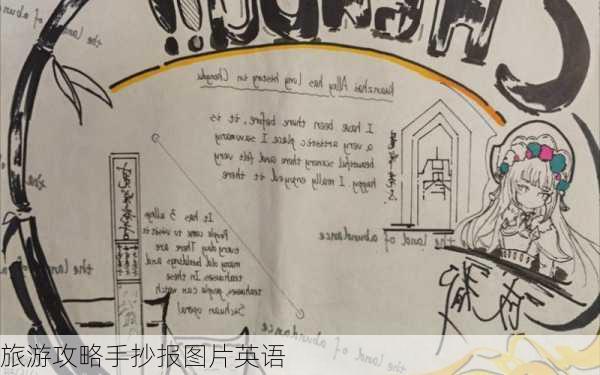 CHENGDU!!
the land of abun
Kuanzhai Alley has long history in Chengdu
I have been there before, it is
a very artistic place I saw many
beautiful scenery there and felt very
happy. I really enjoyed it there
the land of abundance
It has 3 alleys
People come to visit it
every day There are
many old buildings and
teahouses. In these
teahouses, people can watch
Sichuan opera)
the land of abundance
the land
the land of ab
旅游攻略手抄报图片英语